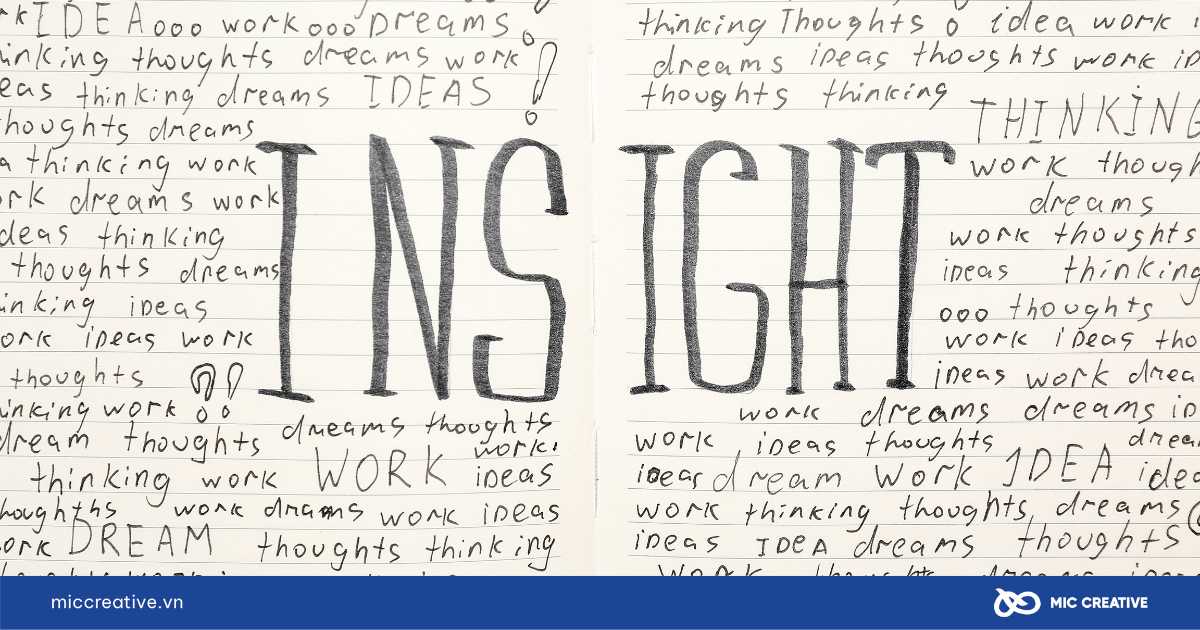 IDEA ooo work ooo Dreams
thinking thoughts dreams work
ideas thinking dreams IDEAS
thoughts dreams
thinking work
work dreams work
ideas thinking
thoughts dreams
thinking ideas
work ideas work
thoughts ??
thinking work
dream thoughts dreams thoughts
work!
thinking work WORK ideas
work work ideas
work DREAM thoughts thinking
INSIGHT
thinking Thoughts o idea work
dreams ideas thoughts work
thoughts thinking
THINKING
work
dreams
work thoughts
ideas thinking
ooo thoughts
work ideas
ideas work
work dreams dreams
work ideas thoughts
dream work IDEA
work thinking thoughts dreams
ideas IDEA dreams thoughts
miccreative.vn
MIC CREATIVE